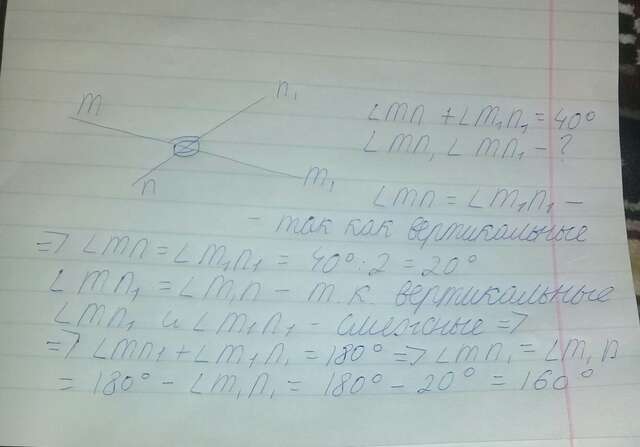 m
n₁
n
m₁
∠mn + ∠m₁n₁ = 40°
∠mn, ∠mn₁ - ?
∠mn = ∠m₁n₁ -
- так как вертикальные
=> ∠mn = ∠m₁n₁ = 40° : 2 = 20°
∠mn₁ = ∠m₁n - т.к. вертикальные
∠mn₁ и ∠m₁n₁ - смежные =>
=> ∠mn₁ + ∠m₁n₁ = 180° => ∠mn₁ = ∠m₁n
= 180° - ∠m₁n₁ = 180° - 20° = 160°